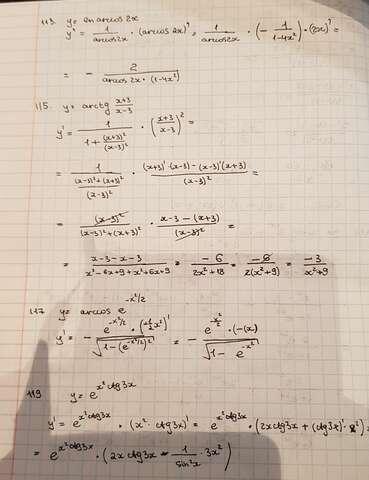 113. y = ln arccos 2x
y' = 1/(arccos 2x) · (arccos 2x)' = 1/(arccos 2x) · (− 1/(1−4x²)) · (2x)' =
= − 2/(arccos 2x · (1−4x²))
115. y = arctg (x+3)/(x−3)
y' = 1/(1+(x+3)²/(x−3)²) · ((x+3)/(x−3))² =
= 1/(((x−3)²+(x+3)²)/(x−3)²) · ((x+3)'·(x−3)−(x−3)'(x+3))/(x−3)² =
= (x−3)²/((x−3)²+(x+3)²) · (x−3−(x+3))/(x−3)² =
= (x−3−x−3)/(x²−6x+9+x²+6x+9) = −6/(2x²+18) = −6/(2(x²+9)) = −3/(x²+9)
117 y = arccos e^(−x²/2)
y' = − (e^(−x²/2) · (−1/2 x²)')/√(1−(e^(−x²/2))²) = − (e^(−x²/2) · (−x))/√(1−e^(−x²))
119 y = e^(x² ctg3x)
y' = e^(x² ctg3x) · (x² · ctg3x)' = e^(x² ctg3x) · (2x ctg3x + (ctg3x)' · x²) =
= e^(x² ctg3x) · (2x ctg3x − 1/(sin²x) · 3x²)